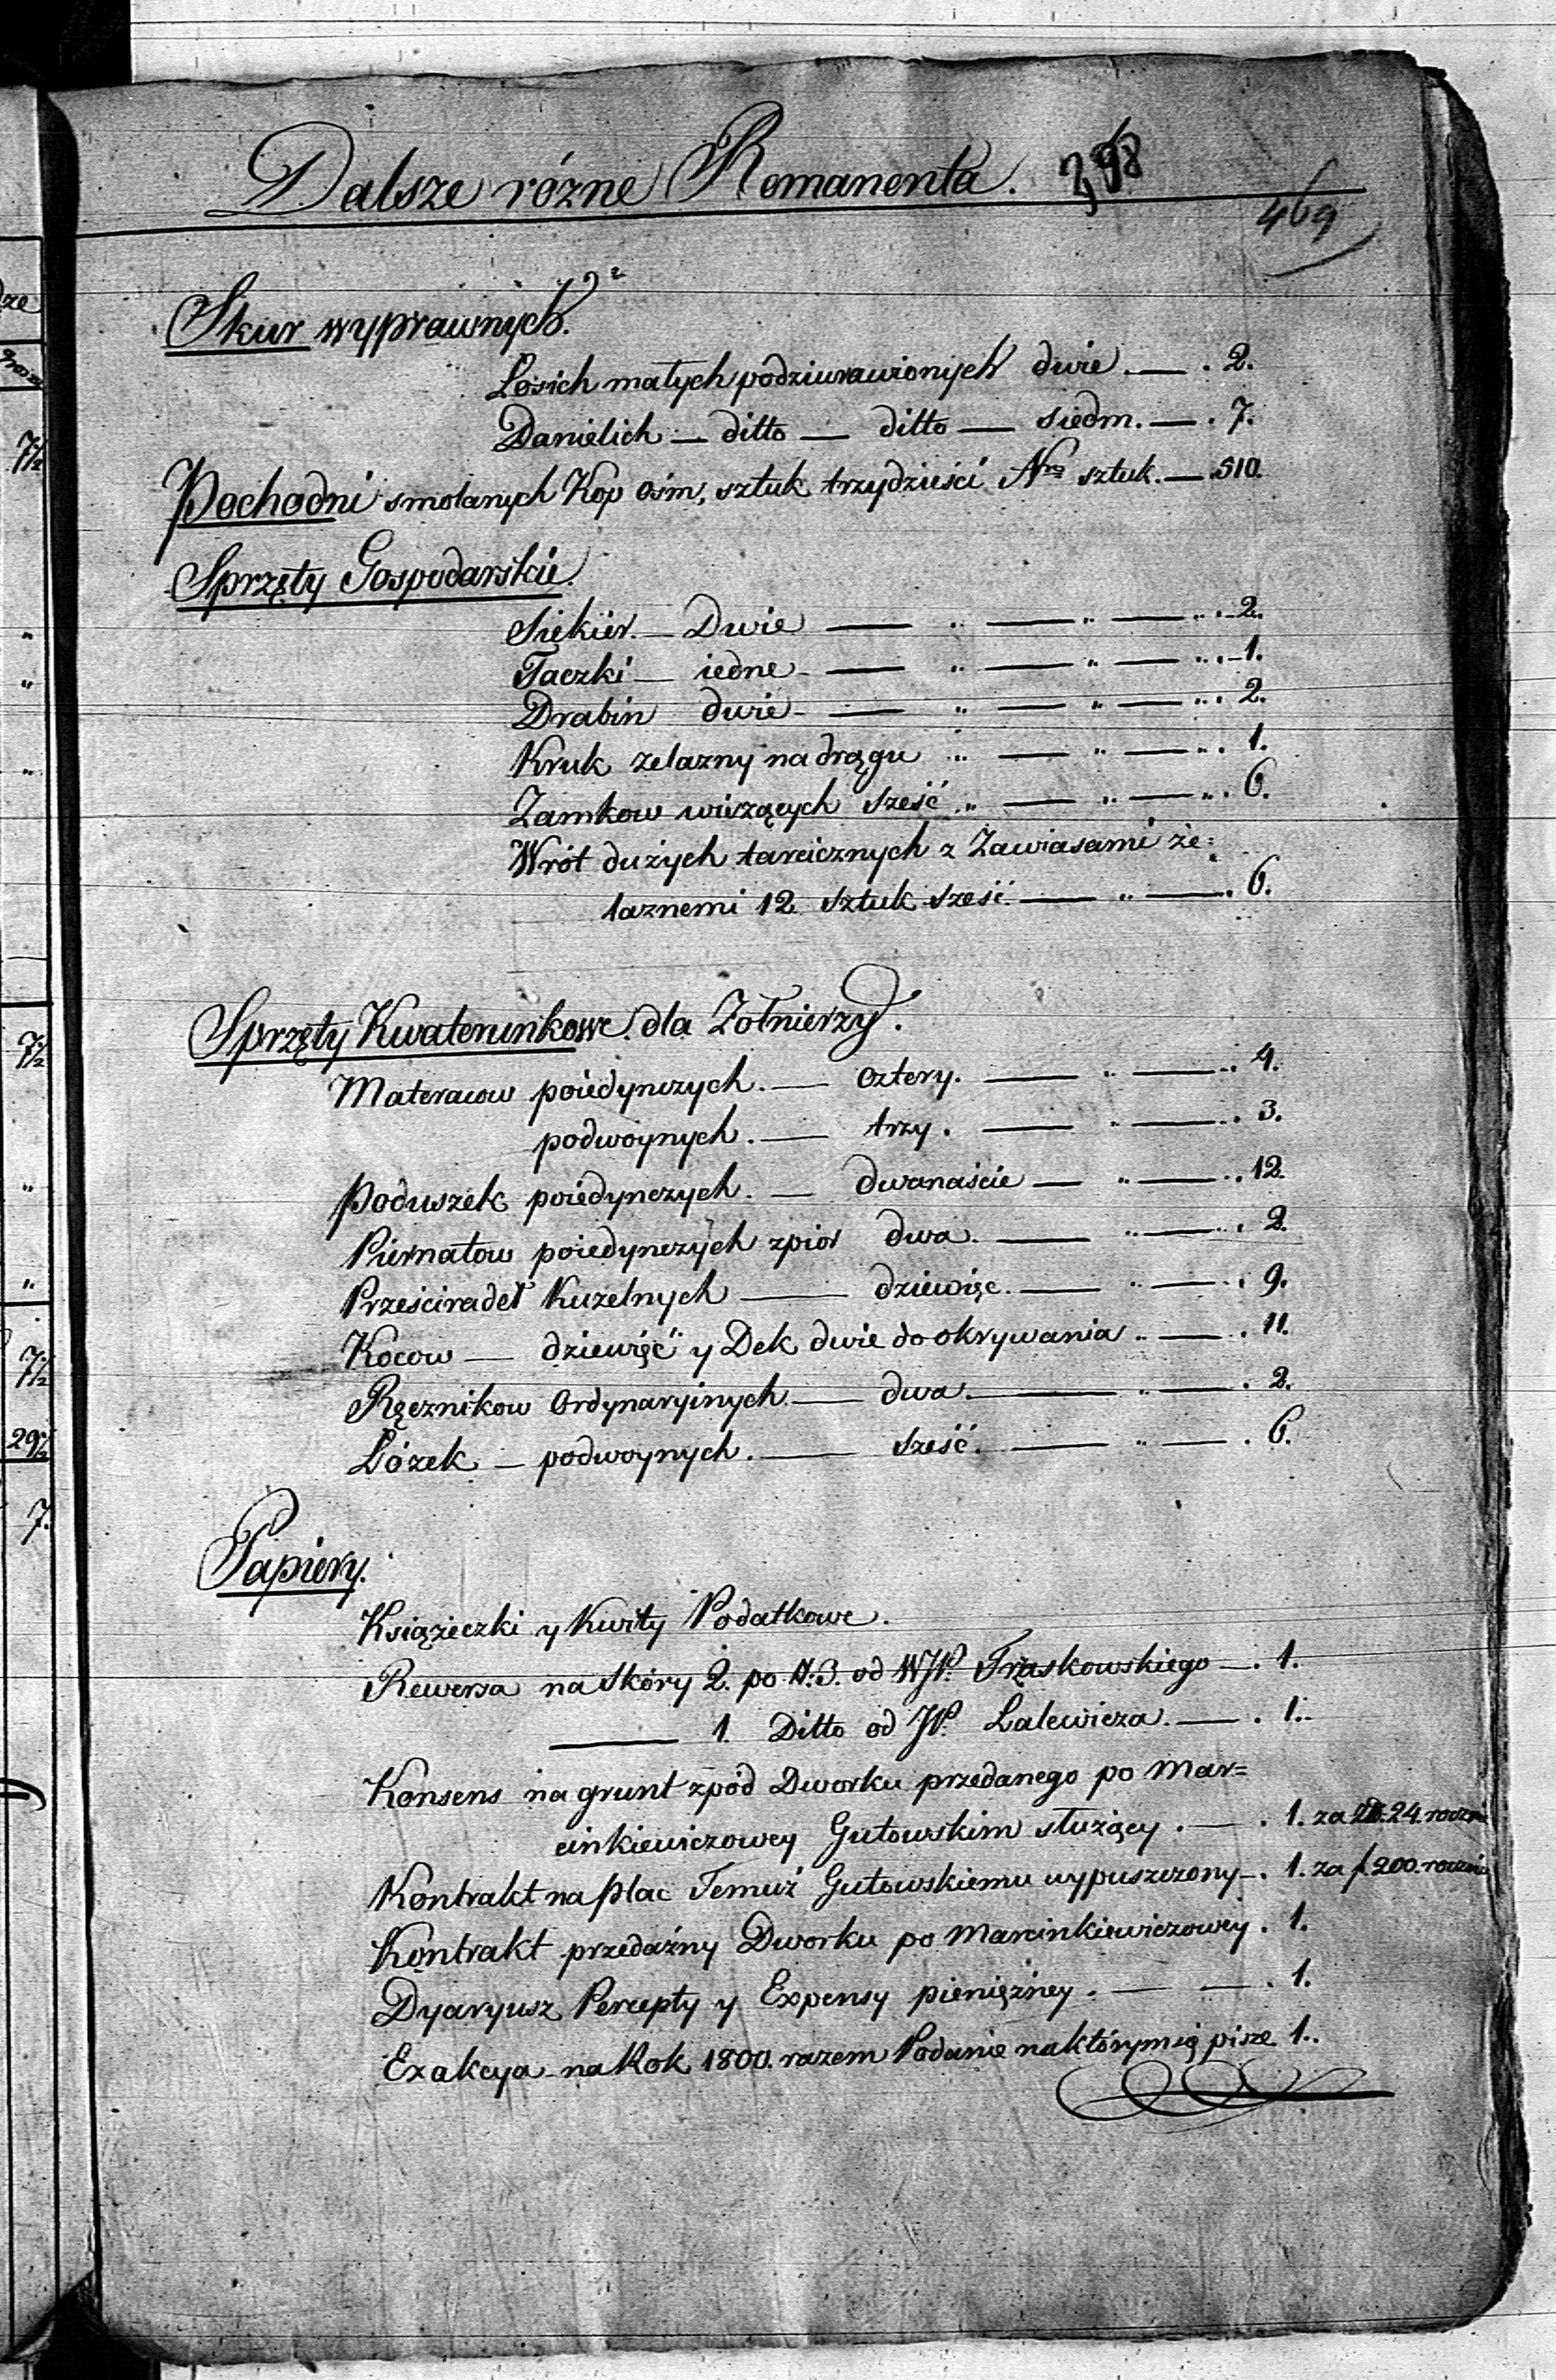 Dalsze rózne Remanenta. 398
469
Skur wyprawnych.
Łosich małych podziurawionych dwie. — . 2.
Danielich — ditto — ditto — siedm. — . 7.
Pochodni smolanych Kop ośm, sztuk trzydzieści Nro sztuk. — .510.
Sprzęty Gospodarskie.
Siekier. — Dwie — „ — „ — „ . 2.
Taczki — iedne — „ — „ — „ . 1.
Drabin dwie — „ — „ — „ . 2.
Kruk zelazny na drągu „ — „ — „ . 1.
Zamkow wiszących sześć „ — „ — „ . 6.
Wrót dużych tarcicznych z Zawiasami że:
laznemi 12 sztuk sześć. — „ — . 6.
Sprzęty Kwaterunkowe. dla Zołnierzy.
Materacow poiedynczych. — cztery. — „ — . 4.
podwoynych. — trzy. — „ — . 3.
Poduszek poiedynczych. — dwanaście — „ — . 12.
Piernatow poiedynczych zpior dwa. — „ — . 2.
Prześciradeł Kuzelnych — dziewięc. — „ — . 9.
Kocow — dziewięć y Dek dwie do okrywania „ — . 11.
Ręcznikow Ordynaryinych — dwa. — „ — . 2.
Łózek — podwoynych. — sześć. — „ — . 6.
Papiery.
Książeczki y Kwity Podatkowe.
Rewersa na Skóry 2. po #.3. od WJP. Trzaskowskiego — . 1.
— 1. Ditto od JP. Lalewicza. — . 1.
Konsens na grunt zpód Dworku przedanego po Mar=
cinkiewiczowey Gutowskim służący. — . 1. za 24. roczni
Kontrakt na plac Temuż Gutowskiemu wypuszczony — . 1. za f.200. rocznie
Kontrakt przedażny Dworku po Marcinkiewiczowey . 1.
Dyaryusz Percepty y Expensy pieniężney. — — . 1.
Exakcya na Rok 1800. razem Podanie na którym się pisze 1.
7½
7½
„
7½
29½
7.